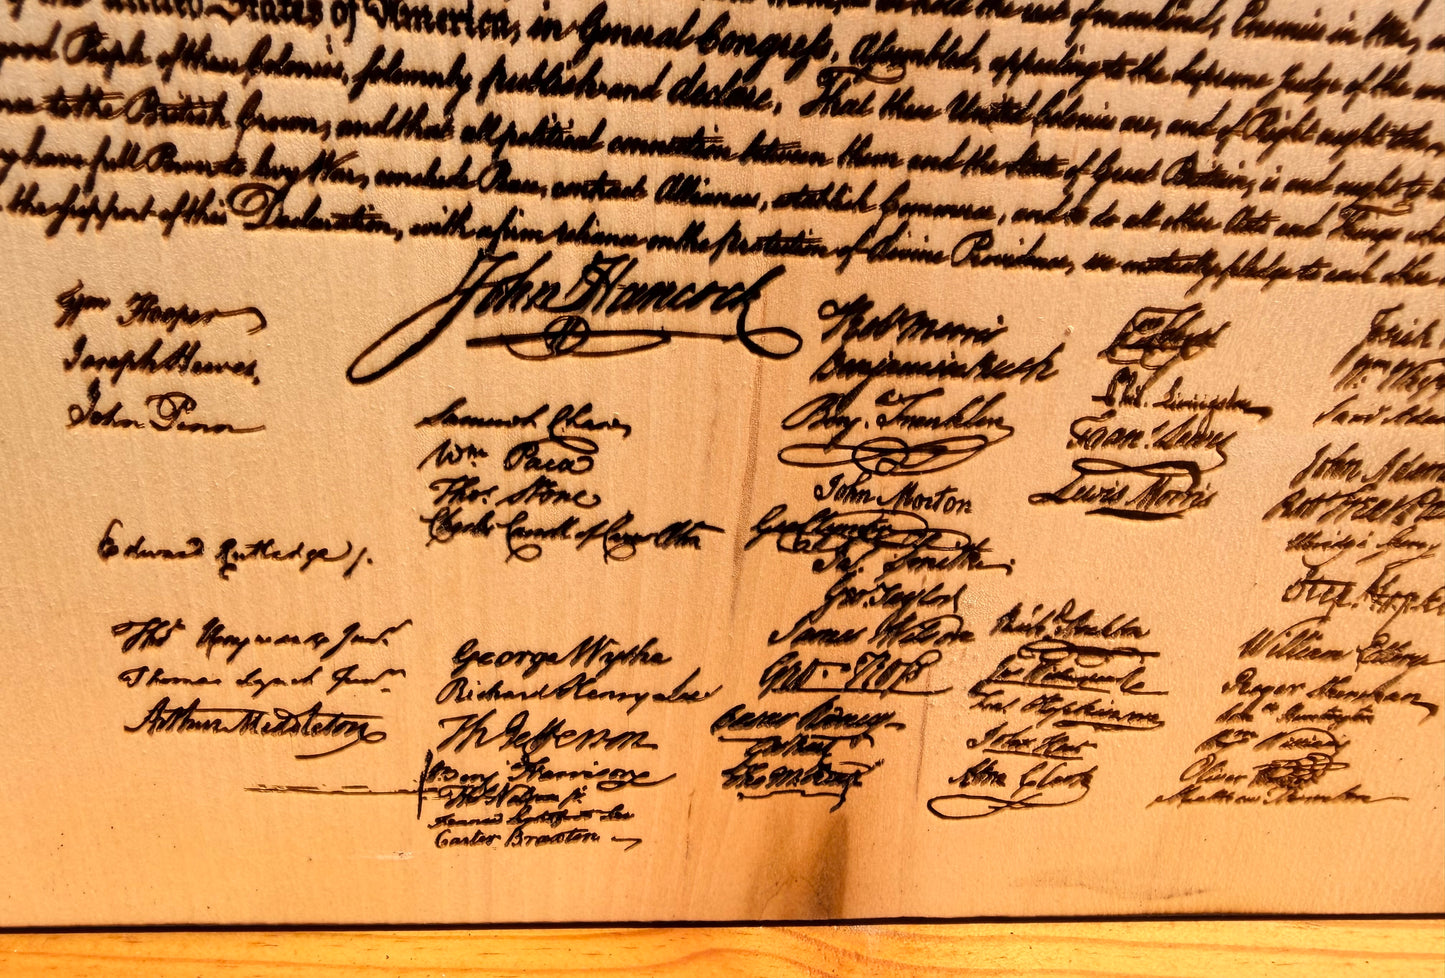 the United States of America, in General Congress, Assembled, appealing to the Supreme Judge of the
good People of these Colonies, solemnly publish and declare, That these United Colonies are, and of Right ought to be
to the British Crown, and that all political connection between them and the State of Great Britain, is and ought to
have full Power to levy War, conclude Peace, contract Alliances, establish Commerce, and to do all other Acts and Things
the support of this Declaration, with a firm reliance on the protection of divine Providence, we mutually pledge to each other
John Hancock
Wm Hooper
Joseph Hewes,
John Penn
Edward Rutledge /.
Thos Heyward Junr.
Thomas Lynch Junr.
Arthur Middleton
Samuel Chase
Wm Paca
Thos. Stone
Charles Carroll of Carrollton
George Wythe
Richard Henry Lee
Th Jefferson
Benj Harrison
Thos Nelson jr.
Francis Lightfoot Lee
Carter Braxton
Robt Morris
Benjamin Rush
Benj. Franklin
John Morton
Geo Clymer
Jas. Smith.
Geo. Taylor
James Wilson
Geo. Ross
Caesar Rodney
Geo Read
Tho M:Kean
Phil. Livingston
Frans. Lewis
Lewis Morris
Richd. Stockton
Jno Witherspoon
Fras. Hopkinson
John Hart
Abra Clark
Josiah
Wm Whipple
Saml Adams
John Adams
Robt Treat Paine
Elbridge Gerry
Step. Hopkins
William Ellery
Roger Sherman
Saml Huntington
Wm Williams
Oliver Wolcott
Matthew Thornton